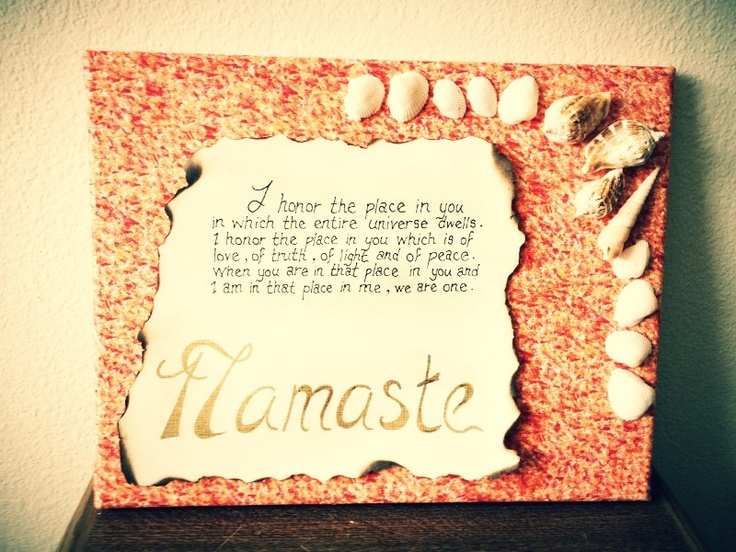 I honor the place in you
in which the entire universe dwells.
I honor the place in you which is of
love, of truth, of light and of peace.
When you are in that place in you and
I am in that place in me, we are one.
Namaste